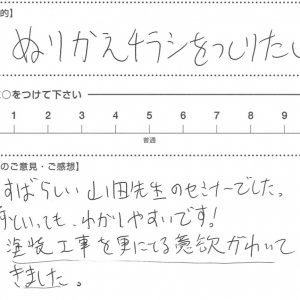 的】
ぬりかえチラシをつしりたし
○をつけて下さい
1 2 3 4 5 6 7 8 9
普通
のご意見・ご感想】
すばらしい 山田先生のセミナーでした。
といっても、わかしやすいです!
塗装工事を更にてる意欲がわいて
きました。